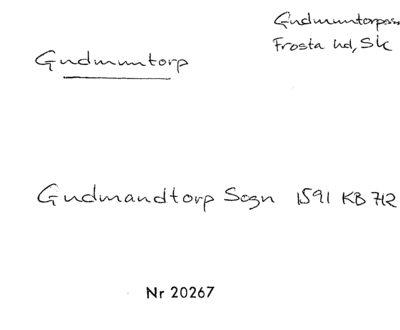 Gudmuntorps
Frosta hd, Sk
Gudmuntorp
Gudmandtorp Sogn 1591 KB 712
Nr 20267